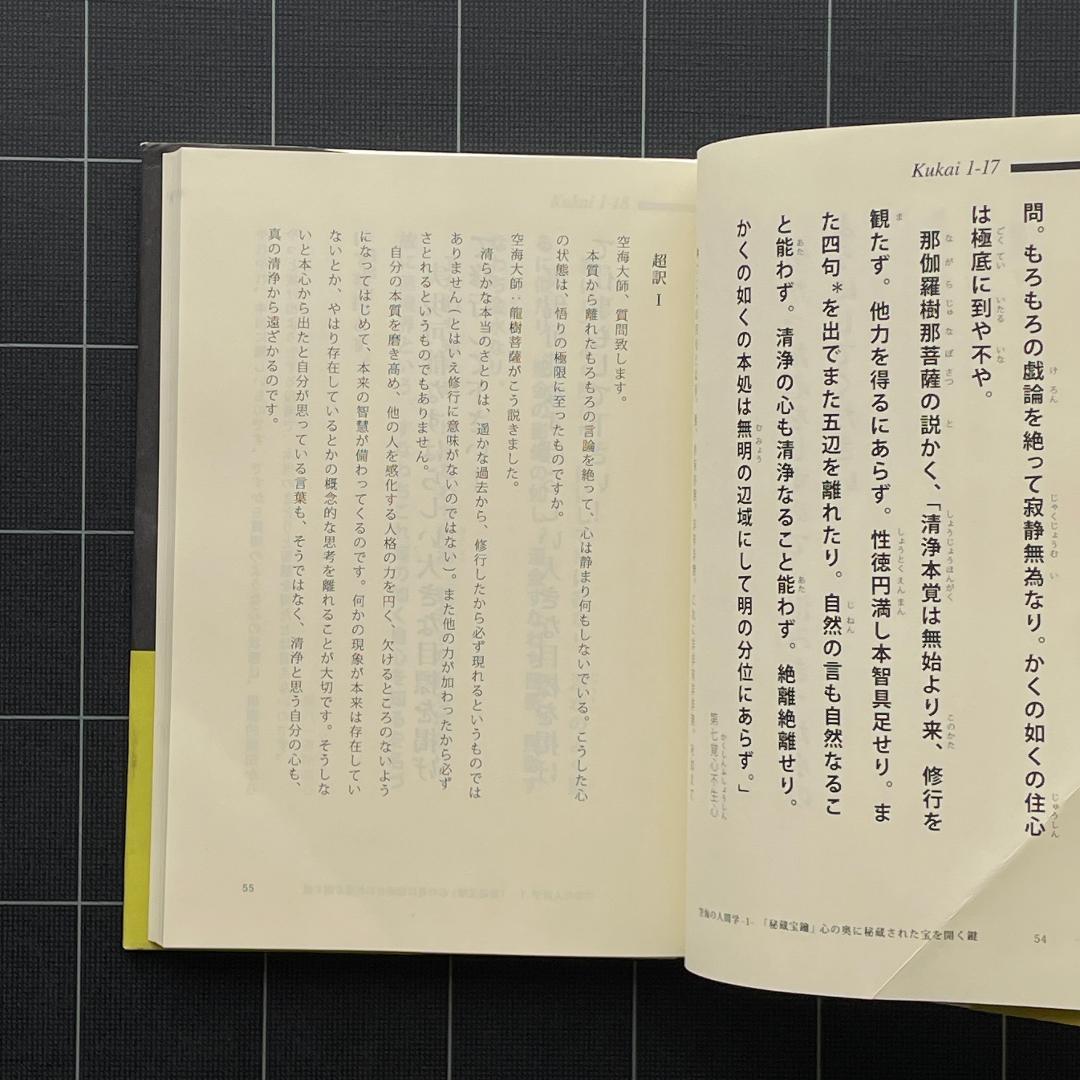 Kukai 1-17
問。もろもろの戯論を絶って寂静無為なり。かくの如くの住心
は極底に到や不や。
那伽羅樹那菩薩の説かく、「清浄本覚は無始より来、修行を
観たず。他力を得るにあらず。性徳円満し本智具足せり。ま
た四句*を出でまた五辺を離れたり。自然の言も自然なるこ
と能わず。清浄の心も清浄なること能わず。絶離絶離せり。
かくの如くの本処は無明の辺域にして明の分位にあらず。」
第七覚心不生心
空海の人間学-1-「秘蔵宝鑰」心の奥に秘蔵された宝を開く鍵
54
超訳 I
空海大師、質問致します。
本質から離れたもろもろの言論を絶って、心は静まり何もしないでいる。こうした心
の状態は、悟りの極限に至ったものですか。
空海大師:龍樹菩薩がこう説きました。
清らかな本当のさとりは、遥かな過去から、修行したから必ず現れるというものでは
ありません(とはいえ修行に意味がないのではない)。また他の力が加わったから必ず
さとれるというものでもありません。
自分の本質を磨き高め、他の人を感化する人格の力を円く、欠けるところのないよう
になってはじめて、本来の智慧が備わってくるのです。何かの現象が本来は存在してい
ないとか、やはり存在しているとかの概念的な思考を離れることが大切です。そうしな
いと本心から出たと自分が思っている言葉も、そうではなく、清浄と思う自分の心も、
真の清浄から遠ざかるのです。
55